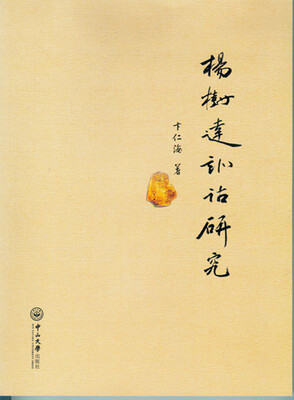 楊樹達訓詁研究
卞仁海 著
中山大學出版社